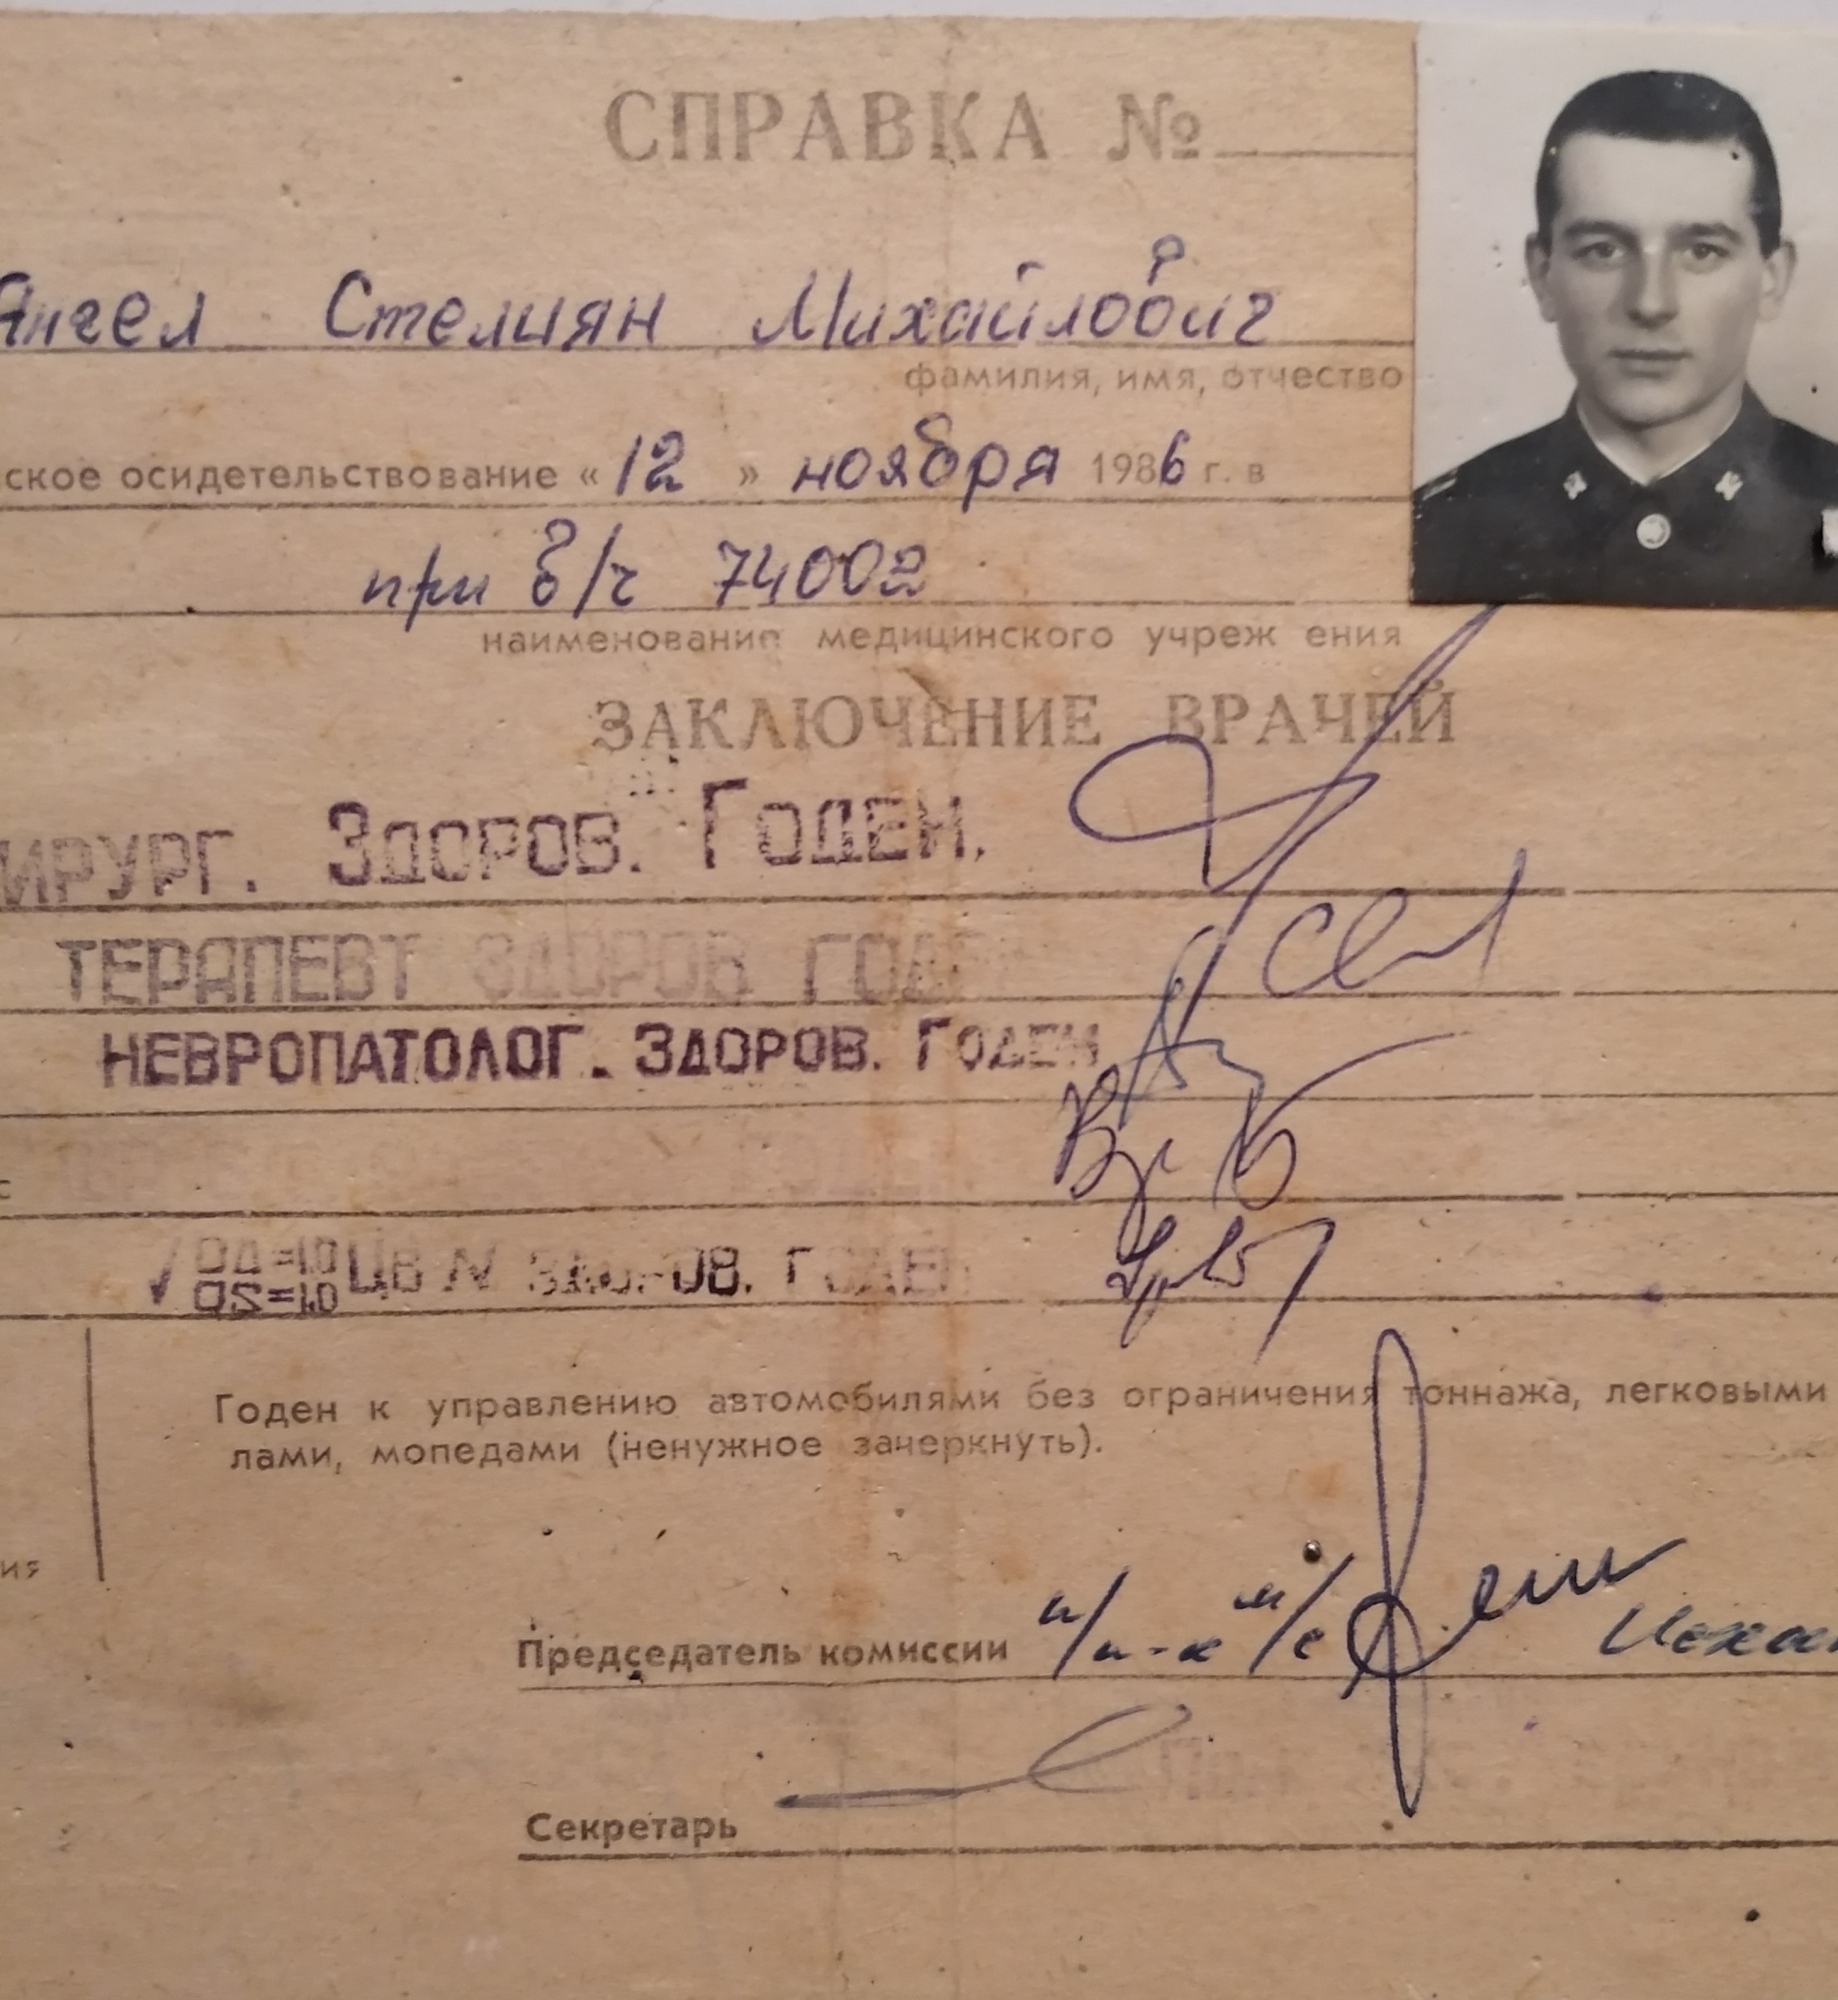 СПРАВКА №
Ангел Стелиян Михайлович
фамилия, имя, отчество
ское осидетельствование « 12 » ноября 1986 г. в
при в/ч 74002
наименование медицинского учреж ения
ЗАКЛЮЧЕНИЕ ВРАЧЕЙ
ИРУРГ. ЗДОРОВ. ГОДЕН.
ТЕРАПЕВТ ЗДОРОВ ГОДЕ
НЕВРОПАТОЛОГ. ЗДОРОВ. ГОДЕН
с
OD=1.0 ЦВ N ЗДОРОВ. ГОДЕН
OS=1.0
Годен к управлению автомобилями без ограничения тоннажа, легковыми
лами, мопедами (ненужное зачеркнуть).
ия
Председатель комиссии п/п-к м/с
Секретарь